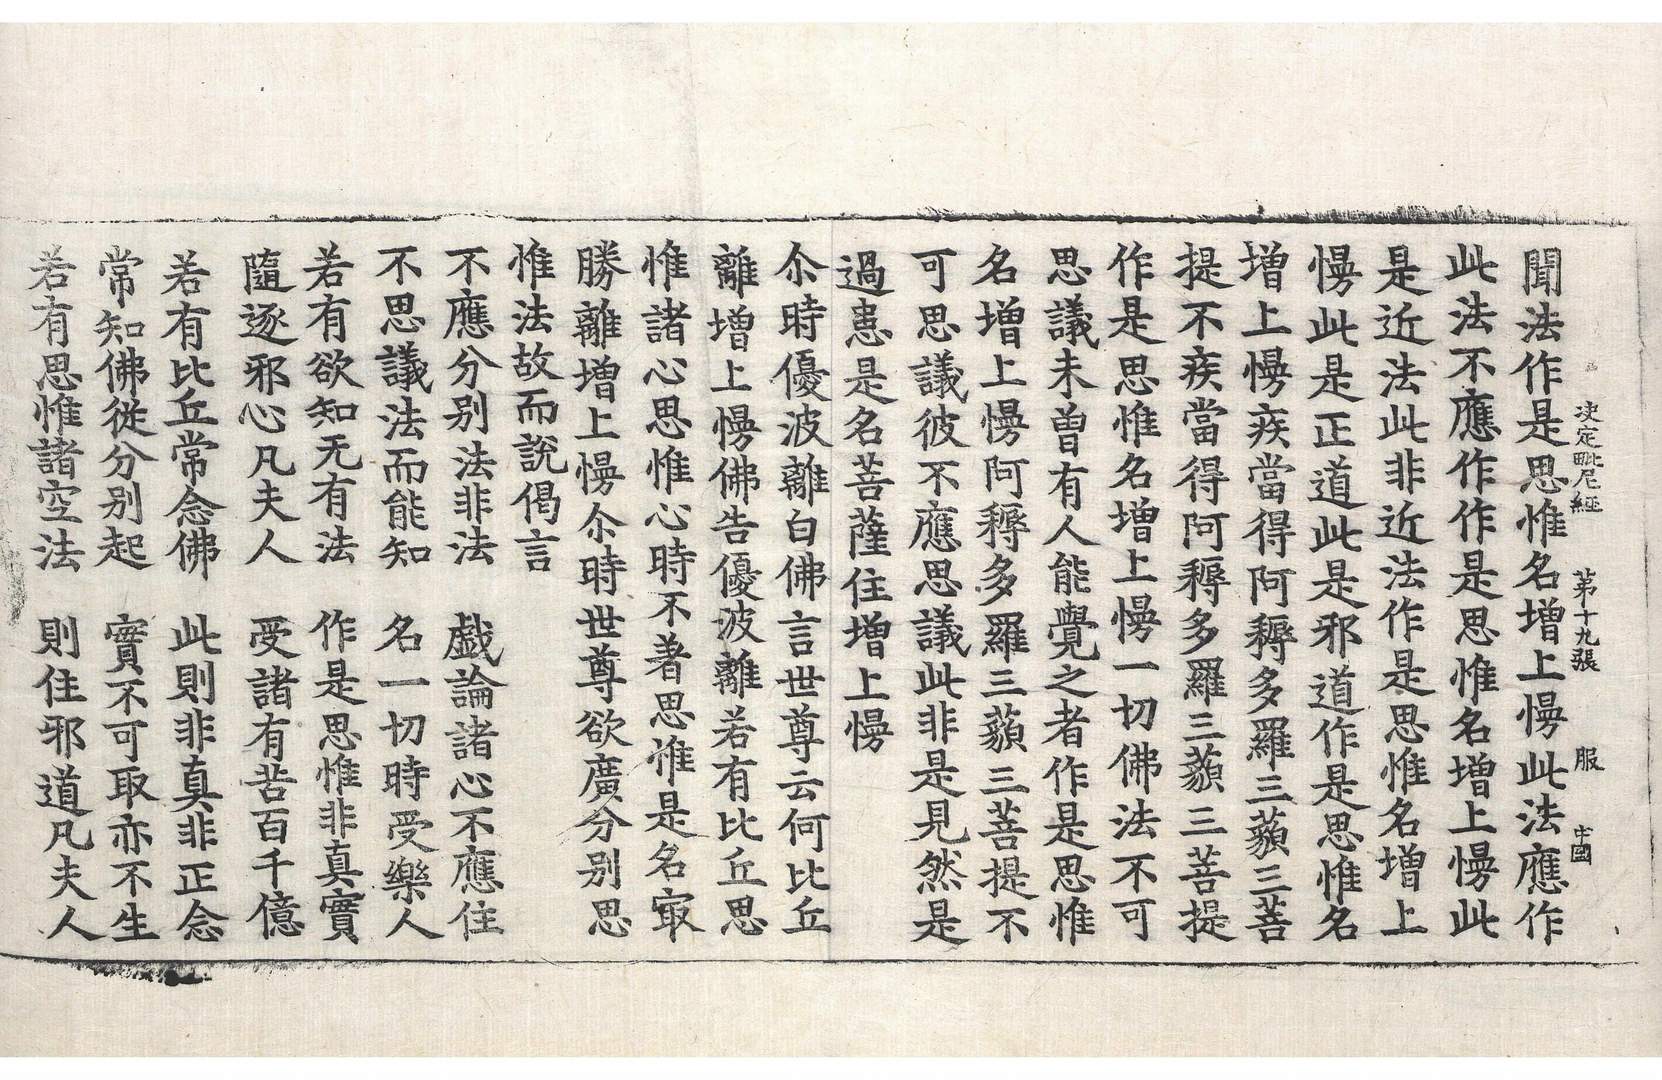 決定毗尼經 第十九張 服 忠國
聞法作是思惟名增上慢此法應作
此法不應作作是思惟名增上慢此
是近法此非近法作是思惟名增上
慢此是正道此是邪道作是思惟名
增上慢疾當得阿耨多羅三藐三菩
提不疾當得阿耨多羅三藐三菩提
作是思惟名增上慢一切佛法不可
思議未曾有人能覺之者作是思惟
名增上慢阿耨多羅三藐三菩提不
可思議彼不應思議此非是見然是
過患是名菩薩住增上慢
尒時優波離白佛言世尊云何比丘
離增上慢佛告優波離若有比丘思
惟諸心思惟心時不著思惟是名㝡
勝離增上慢尒時世尊欲廣分别思
惟法故而說偈言
不應分别法非法 戱論諸心不應住
不思議法而能知 名一切時受樂人
若有欲知无有法 作是思惟非真實
隨逐邪心凡夫人 受諸有苦百千億
若有比丘常念佛 此則非真非正念
常知佛從分别起 實不可取亦不生
若有思惟諸空法 則住邪道凡夫人